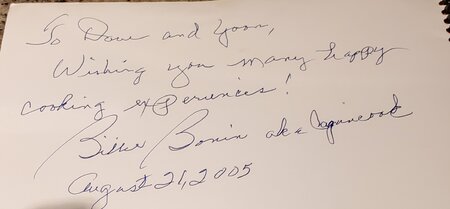 To Dave and Yoon,
Wishing you many happy
cooking experiences!
Billie Bonin aka
August 21, 2005